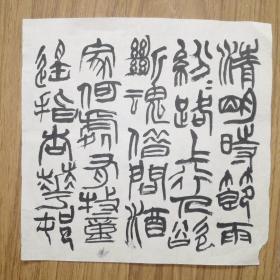 清明時節雨
紛〻路上行人欲
斷魂借問酒
家何處有牧童
遙指杏華村